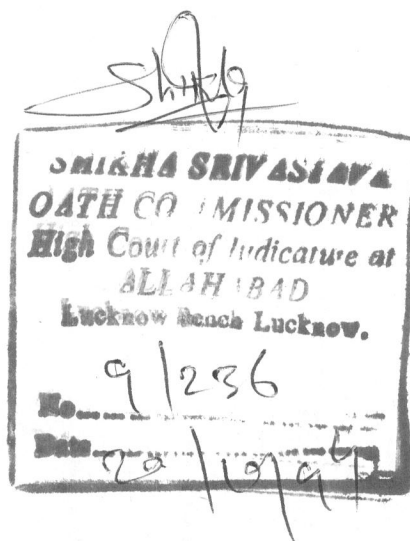 SHIKHA SRIVASTAVA
OATH COMMISSIONER
High Court of Judicature at
ALLAHABAD
Lucknow Bench Lucknow.
No. 9/236
Date 20/10/94